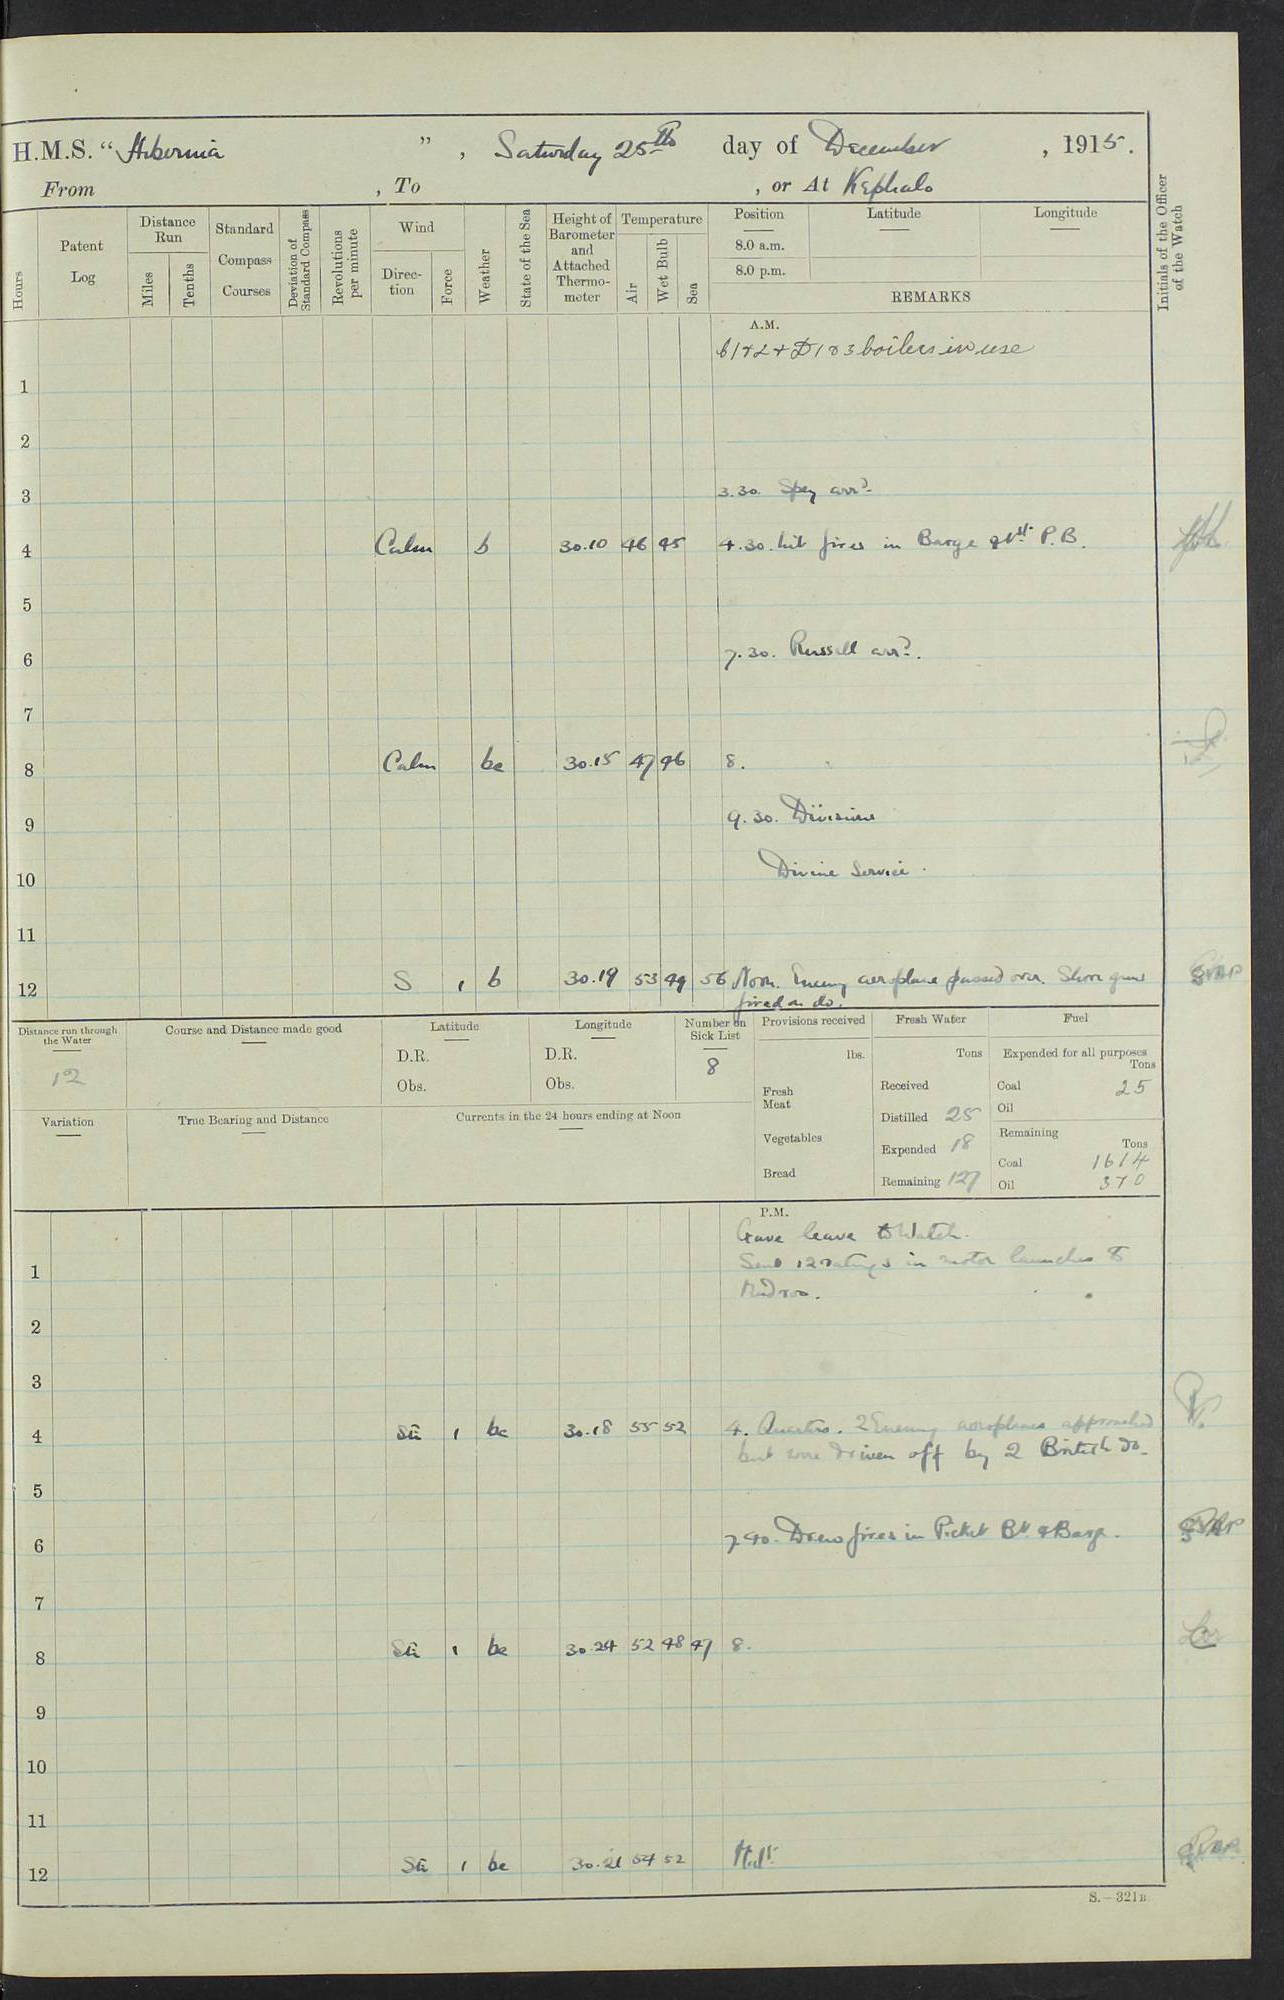 H.M.S. "Hibernia", Saturday 25th day of December, 1915.
From , To , or At Kephalo
Hours
Patent Log
Distance Run
Miles
Tenths
Standard Compass Courses
Deviation of Standard Compass
Revolutions per minute
Wind
Direction
Force
Weather
State of the Sea
Height of Barometer and Attached Thermometer
Temperature
Air
Wet Bulb
Sea
Position
8.0 a.m.
8.0 p.m.
Latitude
Longitude
REMARKS
Initials of the Officer of the Watch
A.M.
1 & 2 & D 1 & 3 boilers in use
1
2
3
3.30. Spey arrd.
4 Calm b 30.10 46 45 4.30. Lit fires in Barge & 1st P.B.
5
6
7.30. Russell arrd.
7
8 Calm bc 30.15 47 46 8.
9
9.30. Divisions
10
Divine Service.
11
12 S 1 b 30.19 53 49 56 Noon. Enemy aeroplane passed over. Shore guns
fired on do.
Distance run through the Water
12
Course and Distance made good
Latitude
D.R.
Obs.
Longitude
D.R.
Obs.
Number on Sick List
8
Provisions received
lbs.
Fresh Meat
Vegetables
Bread
Fresh Water
Tons
Received
Distilled 25
Expended 18
Remaining 127
Fuel
Expended for all purposes
Tons
Coal 25
Oil
Remaining
Tons
Coal 1614
Oil 370
Variation
True Bearing and Distance
Currents in the 24 hours ending at Noon
P.M.
Gave leave to Watch.
1 Send 12 ratings in motor launches to
Mudros.
2
3
4 1 bc 30.18 55 52 4. Quarters. 2 Enemy aeroplanes approached
but were driven off by 2 British do.
5
6
7.40. Drew fires in Picket Bt. & Barge.
7
8 1 bc 30.24 52 48 47 8.
9
10
11
12 1 bc 30.21 54 52 Mdt.
S.—321B.